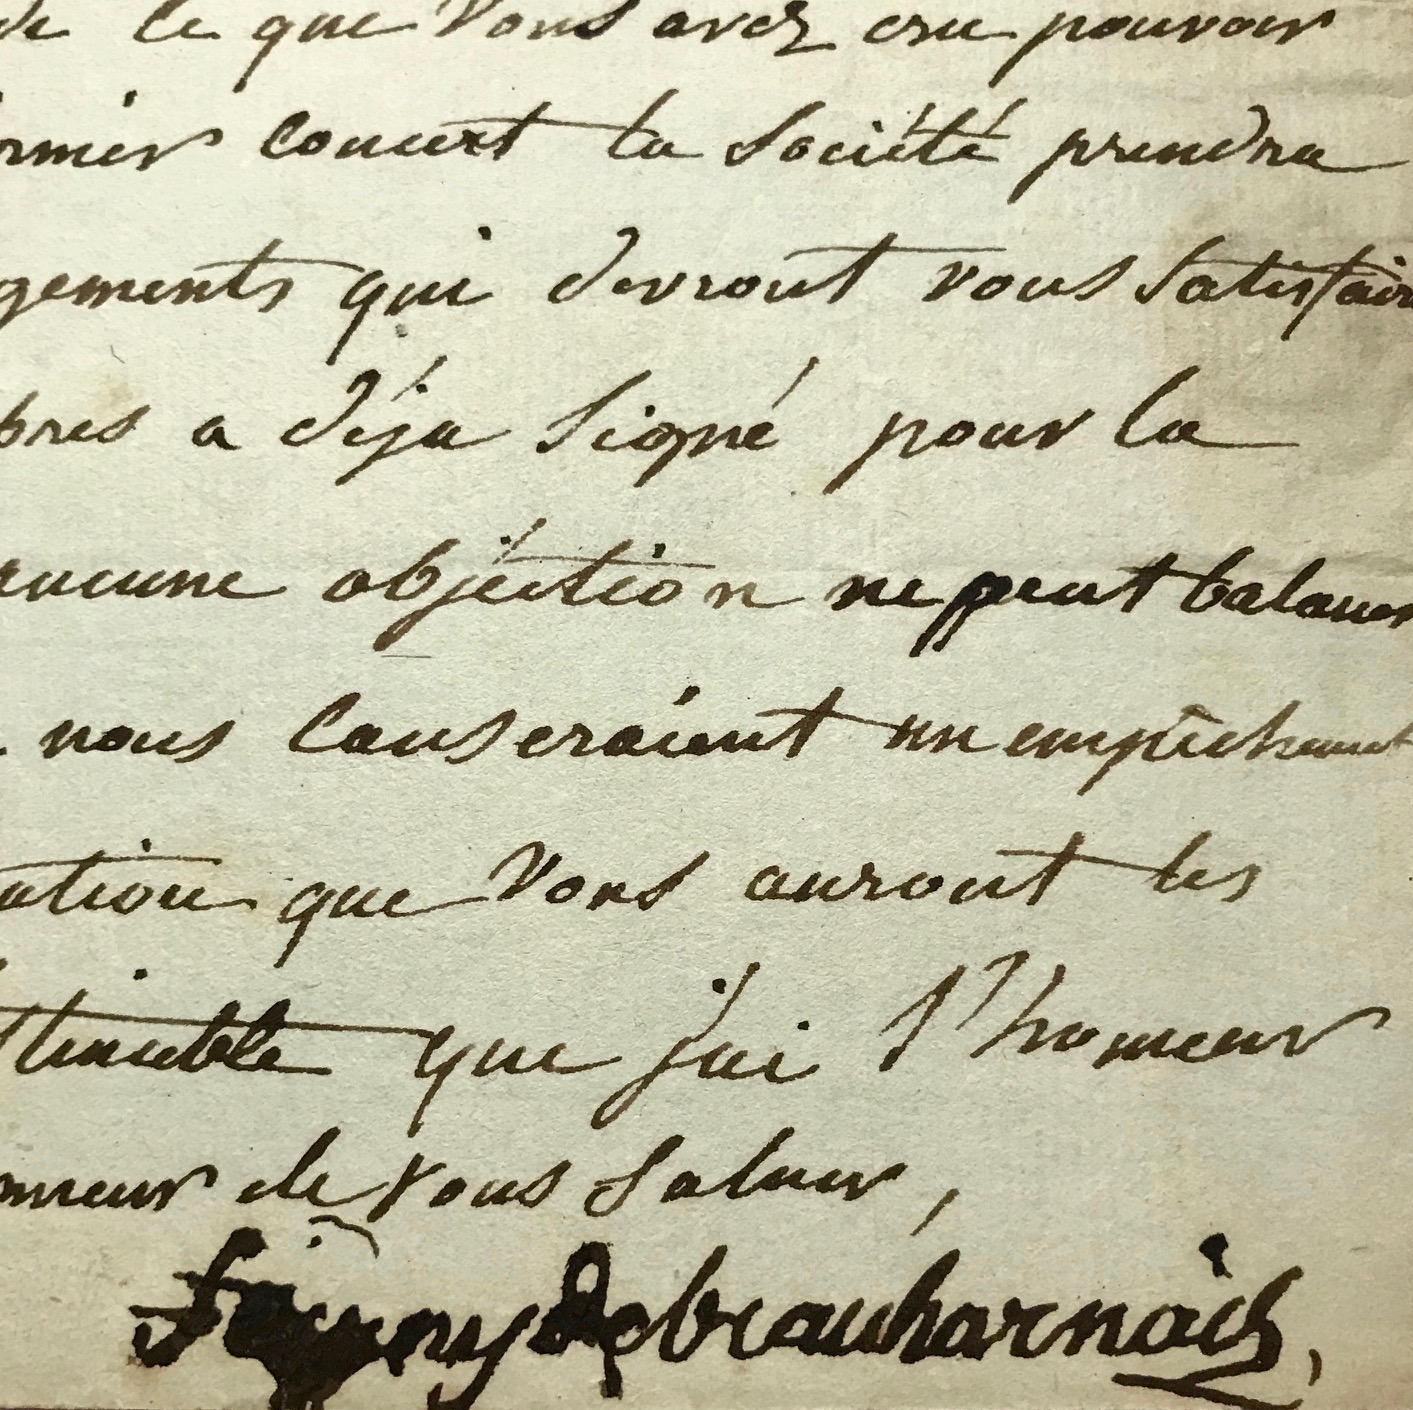 de ce que Vous avez cru pouvoir
rmier concert la Société prendra
gements qui devront vous satisfair
bres a déja Signé pour la
aucune objéction ne peut balancer
nous causeraient un empêchement
ation que Vous auront les
que j'ai l'honneur
nneur de vous Saluer,
Fanny de beauharnais,